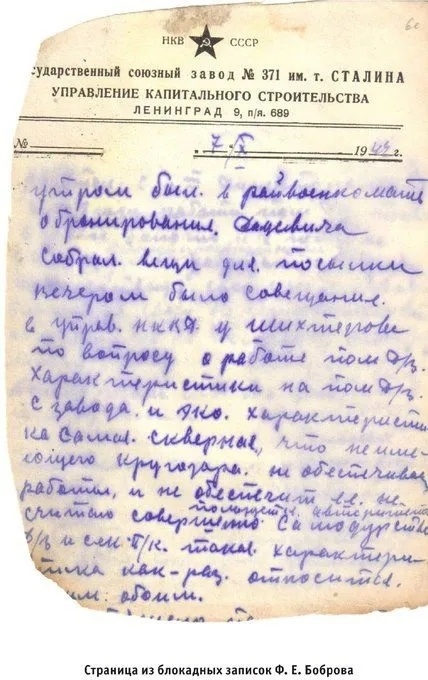 НКВ СССР
сударственный союзный завод № 371 им. т. СТАЛИНА
УПРАВЛЕНИЕ КАПИТАЛЬНОГО СТРОИТЕЛЬСТВА
ЛЕНИНГРАД 9, п/я. 689
№ 7/IX 1942 г.
утром был. в райвоенкомате
о бронирования.
собрал. вещи для. посылки
вечером было совещания.
в управ. НКВД. у
по вопросу о работе пом д/з.
характеристики на пом д/з.
с завода. и эко. характеристи
ка самая. скверная, что не име
ющего кругозара. не обеспечивае
работы, и не обеспечит т.к. не
пользуется авторитетом
считаю совершенно самодурство
д/з и сек п/к. такая. характери
тика как-раз. относится.
им. обоим.
Страница из блокадных записок Ф. Е. Боброва